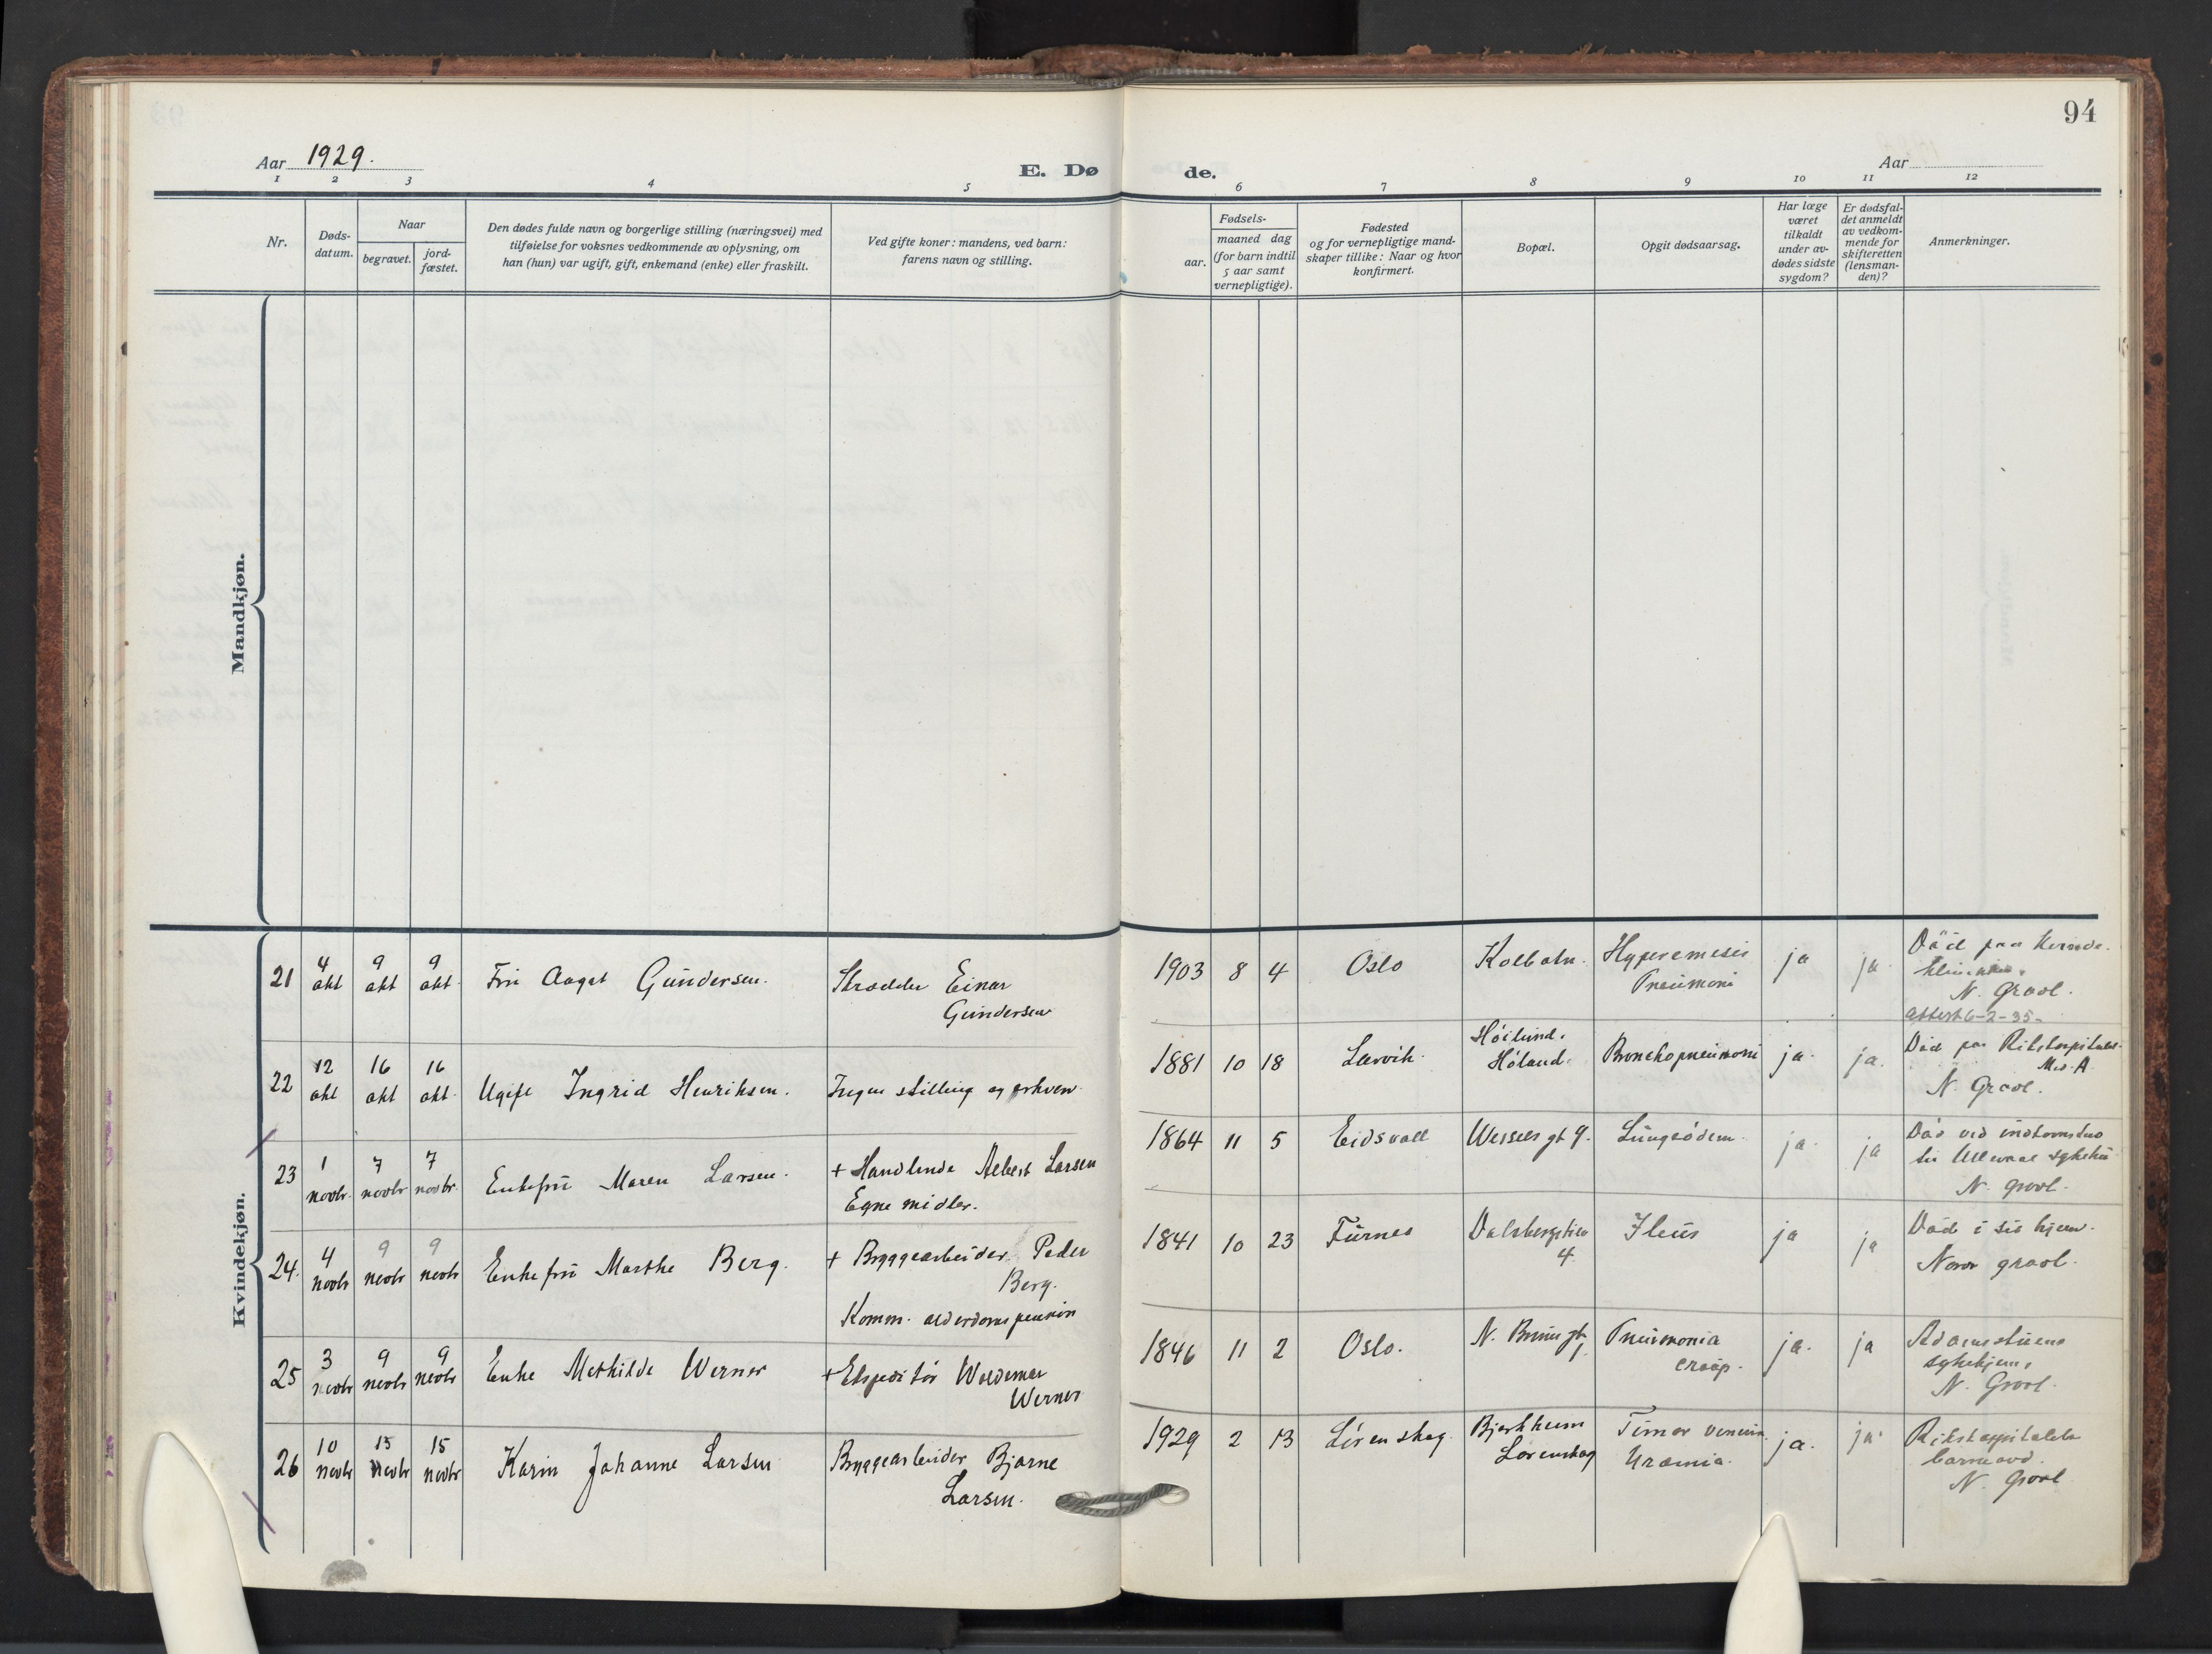 94
Aar 1929.
E. Dø de.
Aar
1 2 3 4 5 6 7 8 9 10 11 12
Nr.
Døds-
datum.
Naar
begravet.
jord-
fæstet.
Den dødes fulde navn og borgerlige stilling (næringsvei) med
tilføielse for voksnes vedkommende av oplysning, om
han (hun) var ugift, gift, enkemand (enke) eller fraskilt.
Ved gifte koner: mandens, ved barn:
farens navn og stilling.
Fødsels-
aar.
maaned dag
(for barn indtil
5 aar samt
vernepligtige).
Fødested
og for vernepligtige mand-
skaper tillike: Naar og hvor
konfirmert.
Bopæl.
Opgit dødsaarsag.
Har læge
været
tilkaldt
under av-
dødes sidste
sygdom?
Er dødsfal-
det anmeldt
av vedkom-
mende for
skifteretten
(lensman-
den)?
Anmerkninger.
Mandkjøn.
Kvindekjøn.
21 4 okt 9 okt 9 okt. Fru Aagot Gundersen. Skrædder Einar
Gundersen
1903 8 4 Oslo Kolbotn. Hyperemesis
Pneumoni
ja ja
Död paa Kvinde-
klinikken.
N. Gravl.
attest 6-2-35-
22 12 okt 16 okt 16 okt. Ugift Ingrid Henriksen. Ingen stilling og erhverv
1881 10 18 Larvik. Höilund.
Höland. Bronchopneumoni ja. ja.
Död paa Rikshospitalet.
Med. A.
N. Gravl.
23 1 novbr. 7 novbr 7 novbr. Enkefru Maren Larsen. + Handlende Albert Larsen
Egne midler.
1864 11 5 Eidsvoll Wessels gt 9. Lungeödem. ja. ja
N. gravl.
24. 4 novbr 9 novbr 9 novbr Enkefru Marthe Berg. + Byggearbeider Peder
Berg.
Komm. alderdomspension
1841 10 23 Furnes Dalsbergstien
4. Ileus ja ja
Död i sit hjem.
Nordr gravl.
25 3 novbr 9 novbr 9 novbr Enke Mathilde Werner + Ekspeditör Woldemar
Werner
1846 11 2 Oslo. N. Bruns gt
1. Pneumonia
croup. ja. ja
Adamstuens
sykehjem.
N. Gravl.
26 10 novbr 15 novbr 15 novbr Karin Johanne Larsen Byggearbeider Bjarne
Larsen.
1929 2 13 Lörenskog Bjerkheim
Lörenskog Uræmia. ja. ja.
Rikshospitalets
barneavd.
N. Gravl